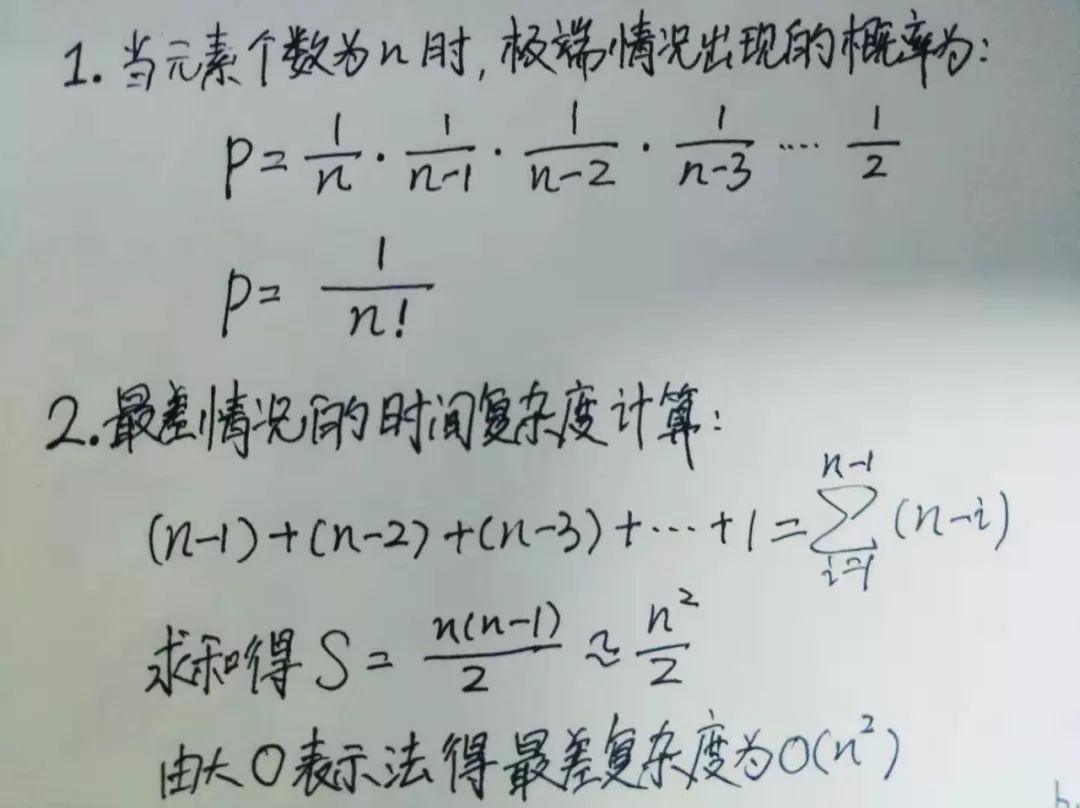 1. 当元素个数为n时, 极端情况出现的概率为:
P = 1/n · 1/(n-1) · 1/(n-2) · 1/(n-3) ···· 1/2
P = 1/n!
2. 最差情况的时间复杂度计算:
(n-1)+(n-2)+(n-3)+···+1 = ∑_{i=1}^{n-1} (n-i)
求和得 S = n(n-1)/2 ≈ n²/2
由大O表示法得最差复杂度为O(n²)